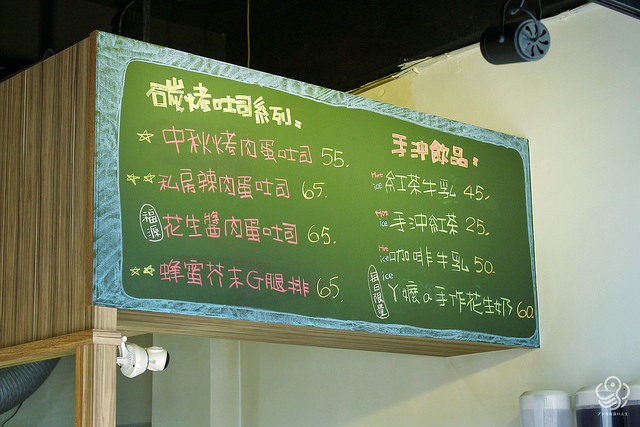 碳烤吐司系列。
☆ 中秋烤肉蛋吐司 55.
☆☆ 私房辣肉蛋吐司 65.
福源 花生醬肉蛋吐司 65.
☆☆ 蜂蜜芥末G腿排 65.
手沖飲品。
Hot ice 紅茶牛乳 45.
Hot ice 手沖紅茶 25.
Hot ice 咖啡牛乳 50.
每日限量 ice ㄚ嬤ㄉ手作花生奶 60